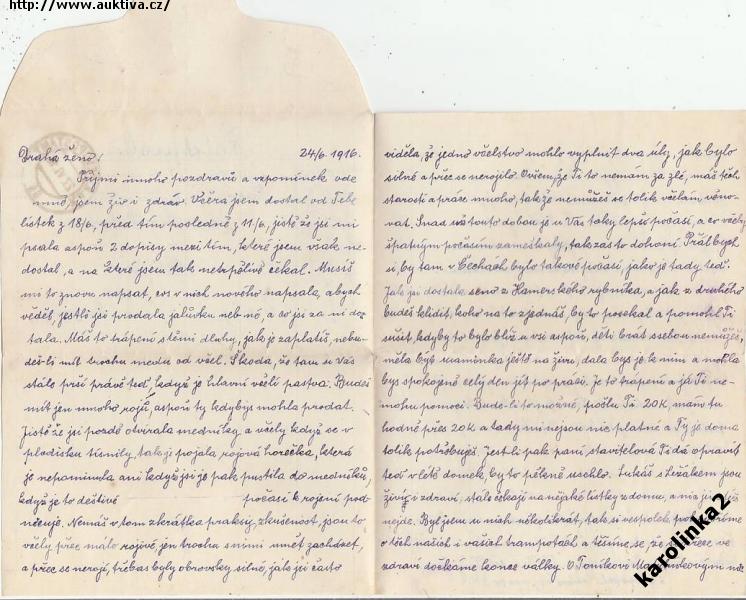 http://www.auktiva.cz/
Drahá ženo! 24/6. 1916.
Přijmi mnoho pozdravů a vzpomínek ode
mně, jsem živ i zdráv. Včera jsem dostal od Tebe
lístek z 18/6, před tím poslední z 11/6, jistě že jsi mi
psala aspoň 2 dopisy mezi tím, které jsem však ne-
dostal, a na které jsem tak netrpělivě čekal. Musíš
mi to znova napsat, cos v nich nového napsala, abych
věděl, jestli jsi prodala jalůvku neb nó, a co jsi za ni dos-
tala. Máš to trápení s těmi dluhy, jak je zaplatíš, nebu-
deš-li mít trochu medu od včel. Škoda, že tam u Vás
stále prší právě teď, když je hlavní včelí pastva. Budeš
mít jen mnoho rojů, aspoň ty kdybys mohla prodat.
Jistě že jsi pozdě otvírala medníky, a včely když se v
plodisku tísnily, tak je pojala rojová horečka, která
je nepominula ani když jsi je pak pustila do medníků,
když je to deštivé počasí k rojení pod-
něcuje. Nemáš v tom zkrátka praksi, zkušenost, jsou to
včely přec málo rojivé, jen trochu s nimi umět zacházet,
a přec se nerojí, třebas byly obrovsky silné, jak jsi často
viděla, že jedno včelstvo mohlo vyplnit dva úly, jak bylo
silné a přece se nerojilo. Ovšem, že Ti to nemám za zlé, máš těch
starostí a práce mnoho, tak že nemůžeš se tolik včelám věno-
vat. Snad už touto dobou je u Vás taky lepší počasí, a co včely
špatným počasím zameškaly, tak zas to dohoní. Přál bych
si, by tam v Čechách bylo takové počasí, jako je tady teď.
Jak jsi dostala seno z Hamerského rybníka, a jak z druhého
budeš klidit, koho na to zjednáš, by to posekal a pomohl Ti
sušit, kdyby to bylo blíž u vsi aspoň, děti brát s sebou nemůžeš,
měla bys maminku ještě na živu, dala bys je k ním a mohla
bys spokojeně celý den jít po práci. Je to trápení a já Ti ne-
mohu pomoci. Bude-li to možné, pošlu Ti 20 K, mám tu
hodně přes 20 K a tady mi nejsou nic platné a Ty je doma
tolik potřebuješ. Jestli pak paní stavitelová Ti dá opravit
teď v létě domek, by to pěkně uschlo. Lukáš s Ležákem jsou
živí i zdraví, stále čekají na nějaké lístky z domu, a nic jim
nejde. Byl jsem u nich několikrát, tak si vespolek
o těch našich i vašich trampotách a těšíme se, že přece ve
zdraví dočkáme konce války. O Toníkovi
karolinka2